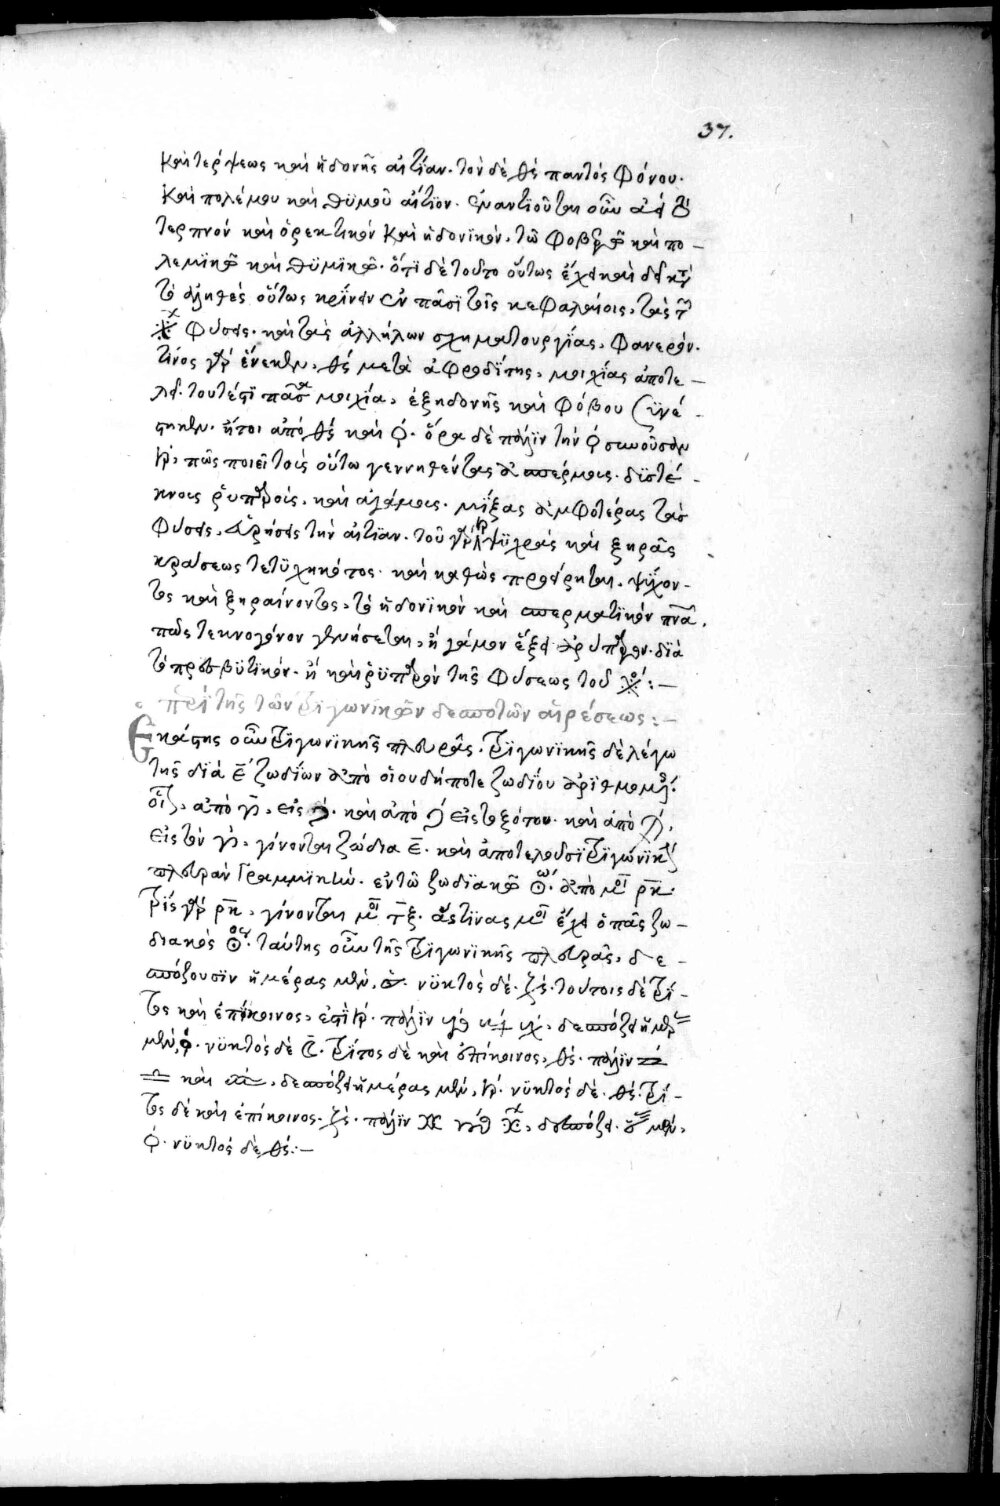 37.
καὶ τέρψεως καὶ ἡδονῆς αἰτίαν. τὸν δὲ ♂ παντὸς φόνου.
καὶ πολέμου καὶ θϋμοῦ αἴτϊον. ἐναντϊοῦται οὖν ἀεὶ τὸ
τερπνὸν καὶ ὀρεκτικὸν καὶ ἡδονϊκὸν, τῶ φοβερῶ καὶ πο-
λεμϊκῶ καὶ θϋμϊκῶ. ὅτϊ δὲ τοῦτο οὕτως ἔχει καὶ δεῖ
τὸ ἀληθὲς οὕτως κρίνειν ἐν πᾶσϊ τοῖς κεφαλαίοις, τὰς τῶν
φύσεις. καὶ τὰς ἀλλήλων σχηματουργίας, φανερόν.
τίνος γὰρ ἕνεκεν, ♂ μετὰ ἀφροδίτης, μοιχίας ἀποτε-
λεῖ. τουτέστϊ πᾶσα μοιχία, ἐξ ἡδονῆς καὶ φόβου συνέ-
στηκεν. ἤτοι ἀπὸ ♂ καὶ ♀. ὅρα δὲ πάλϊν τὴν ♀ συνοῦσαν
♄, πῶς ποιεῖ τοὺς οὕτω γεννηθέντας ἀσπέρμους. δϊστέ-
κνους ῥυπαροὺς. καὶ ἀγάμους. μίξας ἀμφοτέρας τὰς
φύσεις, εὑρήσεις τὴν αἰτίαν. τοῦ γὰρ ♄ ψϋχρᾶς καὶ ξηρᾶς
κράσεως τετϋχηκότος. καὶ καθὼς προείρηται. ψύχον-
τος καὶ ξηραίνοντος, τὸ ἡδονϊκὸν καὶ σπερματϊκὸν πνεῦμα,
πῶς τεκνογόνον γενήσεται, ἢ γάμον ἕξει ἀρύπαρον. δϊὰ
τὸ πρεσβϋτϊκὸν. ἢ καὶ ῥϋπαρὸν τῆς φύσεως τοῦ :-
περὶ τῆς τῶν τριγωνικῶν δεσποτῶν αἱρέσεως:-
Ἑκάστης οὖν τριγωνϊκῆς πλευρᾶς. τριγωνϊκῆς δὲ λέγω
τῆς δϊὰ ε̅ ζωδίων ἀπὸ οἱουδήποτε ζωδίου ἀρϊθμουμ
οἷον, ἀπὸ ♈, εἰς ♌. καὶ ἀπὸ ♌ εἰς τοξότου. καὶ ἀπὸ ♐,
εἰς τὸν ♈, γίνονται ζώδια ε̅. καὶ ἀποτελοῦσϊ τριγώνϊκ
πλευρὰν γραμμϊκήν. ἐν τῶ ζωδϊακῶ ἀπὸ μοι ρ̅κ̅
τρὶς γὰρ ρ̅κ̅, γίνονται μοι τ̅ξ̅. ἅστινας μοι ἔχει ὁ πᾶς ζω-
διακὸς ταύτης οὖν τῆς τριγωνϊκῆς πλευρᾶς, δε-
σπόζουσϊν ἡμέρας μὲν, ☉. νϋκτὸς δὲ. ♃. τούτοις δὲ τρί-
τος καὶ ἐπίκοινος, ἐστὶ ♄. πάλϊν ♉ ♍ ♑, δεσπόζει ἡμέρας
μὲν, ♀. νϋκτὸς δὲ ☾. τρίτος δὲ καὶ ἐπίκοινος, ♂. πάλϊν ♊
♎ καὶ ♒, δεσπόζει ἡμέρας μὲν, ♄. νϋκτὸς δὲ. ☿. τρί-
τος δὲ καὶ ἐπίκοινος. ♃. πάλϊν ♋ ♏ ♓, δεσπόζει. ἡμέρας μὲν,
♀. νϋκτὸς δὲ ♂:-